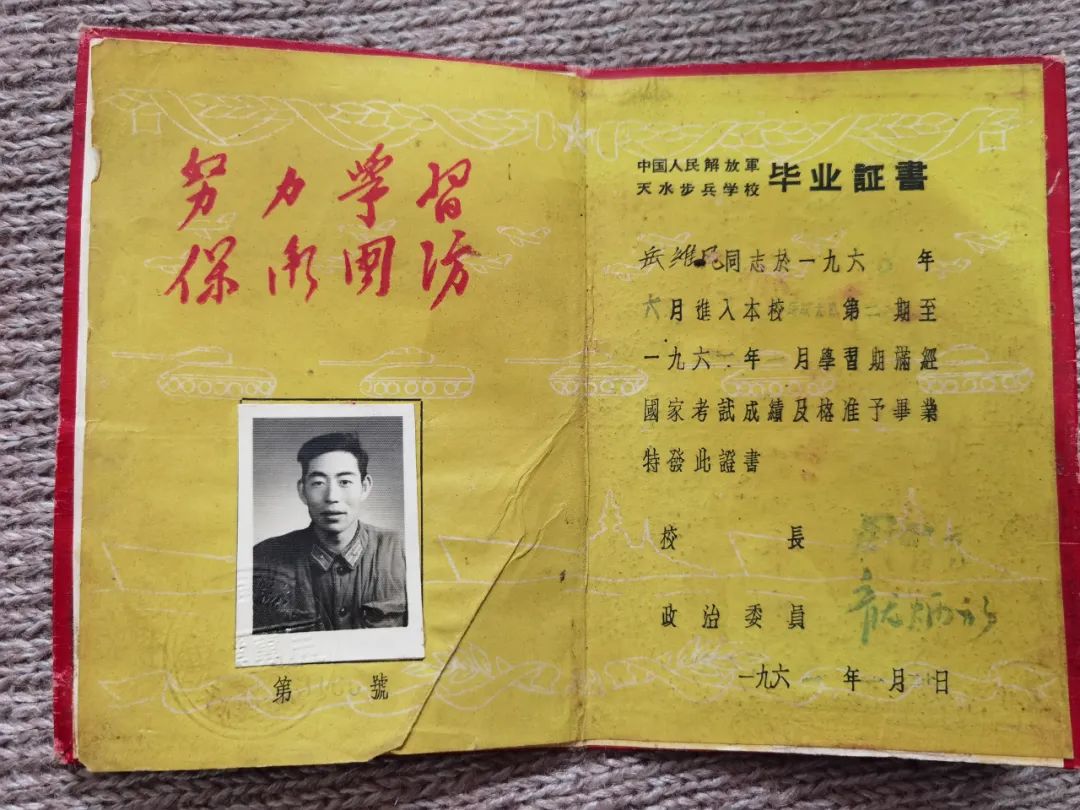 努力學習
保衛国防
第 號
中国人民解放軍
天水步兵学校
毕业証書
兵維 同志於一九六 年
六月進入本校 第二期至
一九六二年 月學習期滿經
國家考試成績及格准予畢業
特發此證書
校 長
政治委員 龐炳
一九六 年 月 日